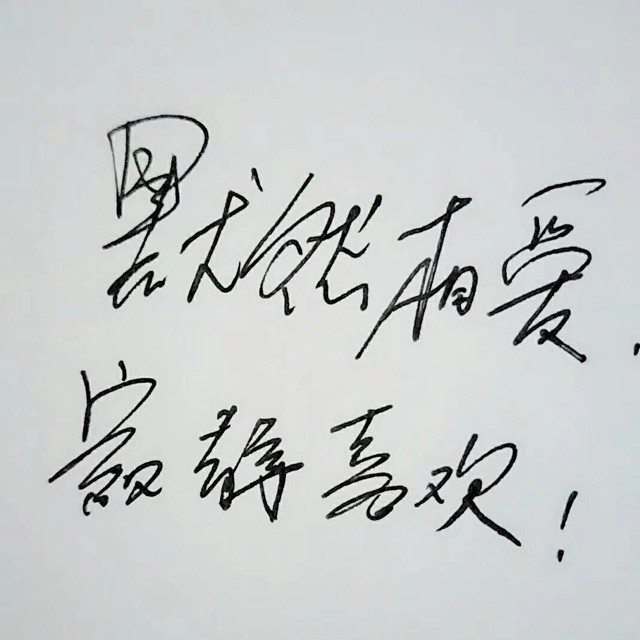 默然相爱,
寂静喜欢!